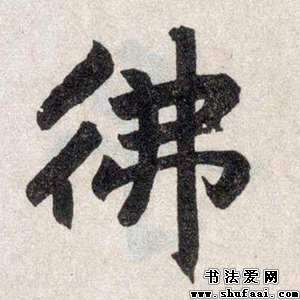 彿
书法爱网
www.shufaai.com